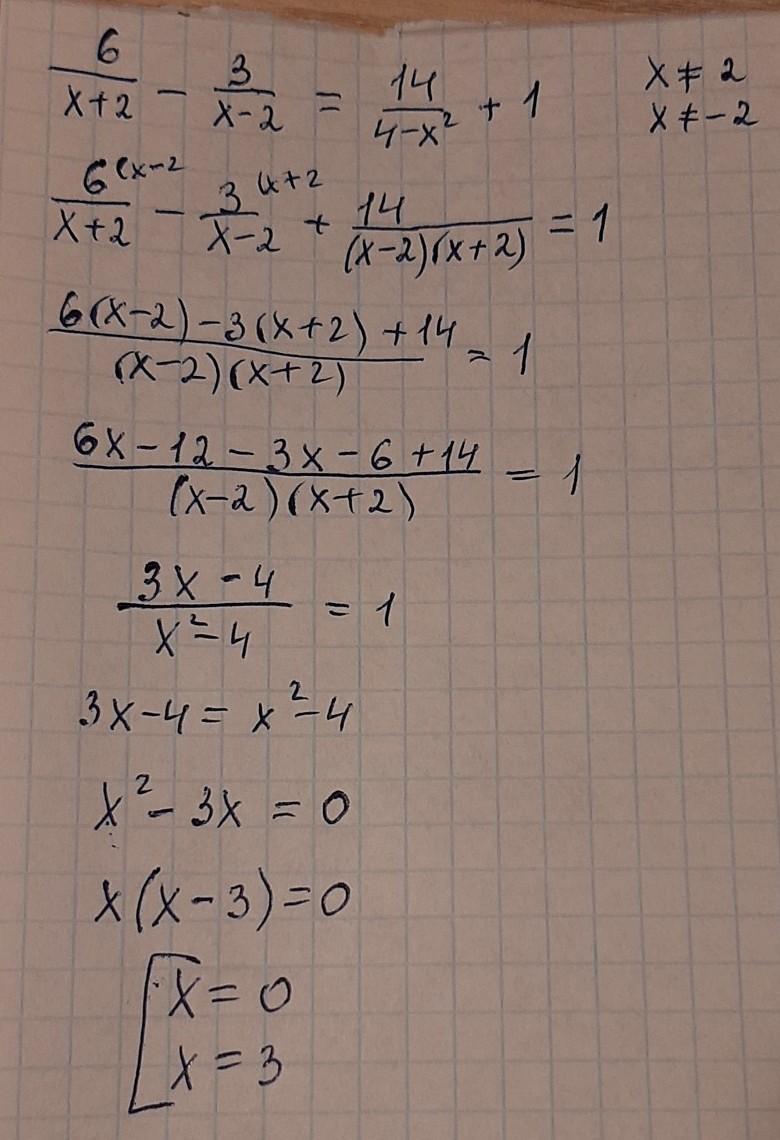 6/(x+2) - 3/(x-2) = 14/(4-x²) + 1   x ≠ 2
x ≠ -2
6^(x-2/(x+2) - 3^(x+2/(x-2) + 14/((x-2)(x+2)) = 1
(6(x-2) - 3(x+2) + 14)/((x-2)(x+2)) = 1
(6x - 12 - 3x - 6 + 14)/((x-2)(x+2)) = 1
(3x - 4)/(x² - 4) = 1
3x - 4 = x² - 4
x² - 3x = 0
x(x - 3) = 0
[ x = 0
x = 3